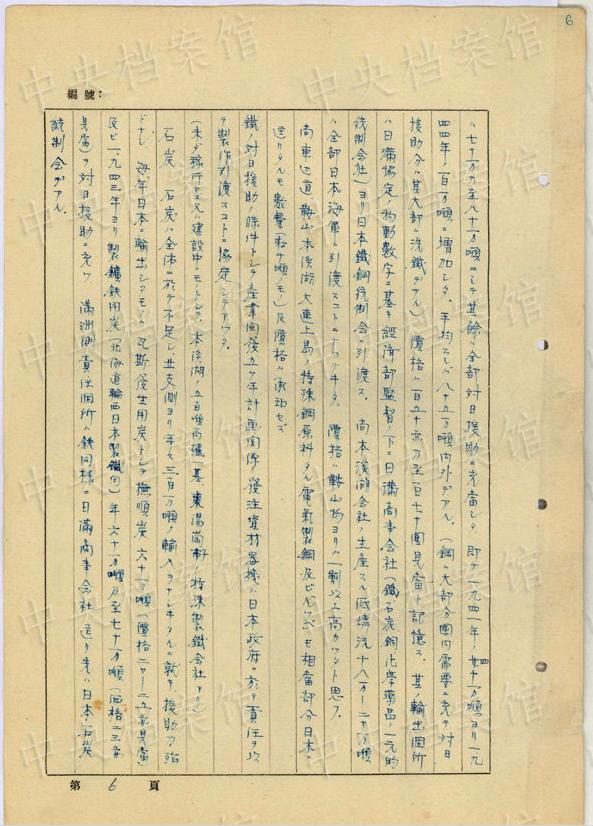 6
中央档案馆
編號：
ハ七十万乃至八十万噸ニシテ其餘ハ全部対日援助ニ充當シタ 即チ一九四一年ノ四十万噸ヨリ一九
四四年ノ百万噸ニ増加シタ。平均スレバ八十五万噸内外デアル。（鋼ハ大部分國内需要ニ充テ対日
援助分ハ其大部ハ洗鐵デアル）價格ハ百五十 乃至百七十圓見當ト記憶ス。其ノ輸出個所
ハ日満協定ノ物動数字ニ基キ經済部監督ノ下ニ日満商事会社（鐵石炭銅化学薬品ノ一元的
統制会社）ヨリ日本鐵鋼統制会ニ引渡ス。尚本溪湖会社ノ生産スル低燐洗十八万—二十万噸
ハ全部日本海軍ニ引渡スコトニナツテヰタ。價格ハ鞍山物ヨリハ一割以上高カツタト思フ。
尚東辺道鞍山本溪湖大連上島ノ特殊鋼原料タル電氣製鋼及ビルツペモ相當部分日本ニ
送リタルモ数量（数千噸ノモノ）及價格ハ承知セズ
鐵ノ対日援助ノ條件トシテ産業開発五ケ年計画関係ノ発注資材器械ハ日本政府ニ於テ責任ヲ以
テ製作引渡スコトニ協定シテアツタ。
石炭 石炭ハ全体ニ於テ不足シ北支側ヨリ年々三百万噸ノ輸入ヲナシヰタルニ就キ援助ノ殆
ドナシ 毎年日本ニ輸出シタモノハ瓦斯発生用炭トシテ撫順炭六十万噸（價格二十—二五 見當）
及ビ一九四三年ヨリ製鐵用炭（北海道輪西日本製鐵向）年六十万噸乃至七十万噸（価格二三
見當）ヲ対日援助ニ充ツ 満洲側責任個所ハ鉄同様ニ日満商事会社 送リ先ハ日本ノ石炭
統制会デアル。
第 6 頁